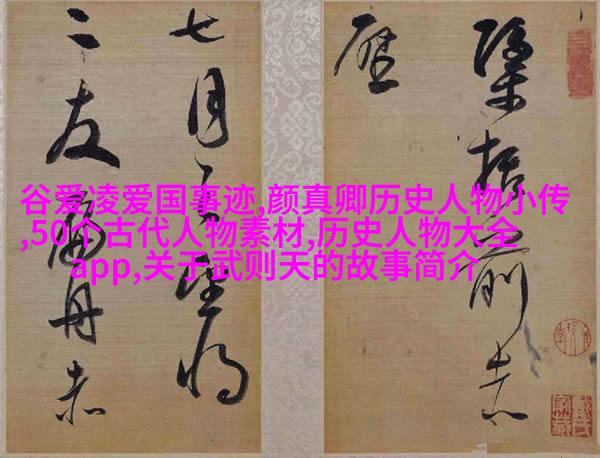 谷爱凌爱国事迹,颜真卿历史人物小传
,50个古代人物素材,历史人物大全
app,关于武则天的故事简介
括前赤
壁
七月之望將
二友扁舟赤